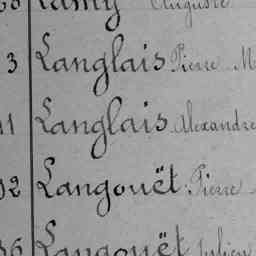 Lamy Auguste
3 Langlais Pierre M
11 Langlais Alexandre
02 Langouët Pierre
36 Langouët Julien